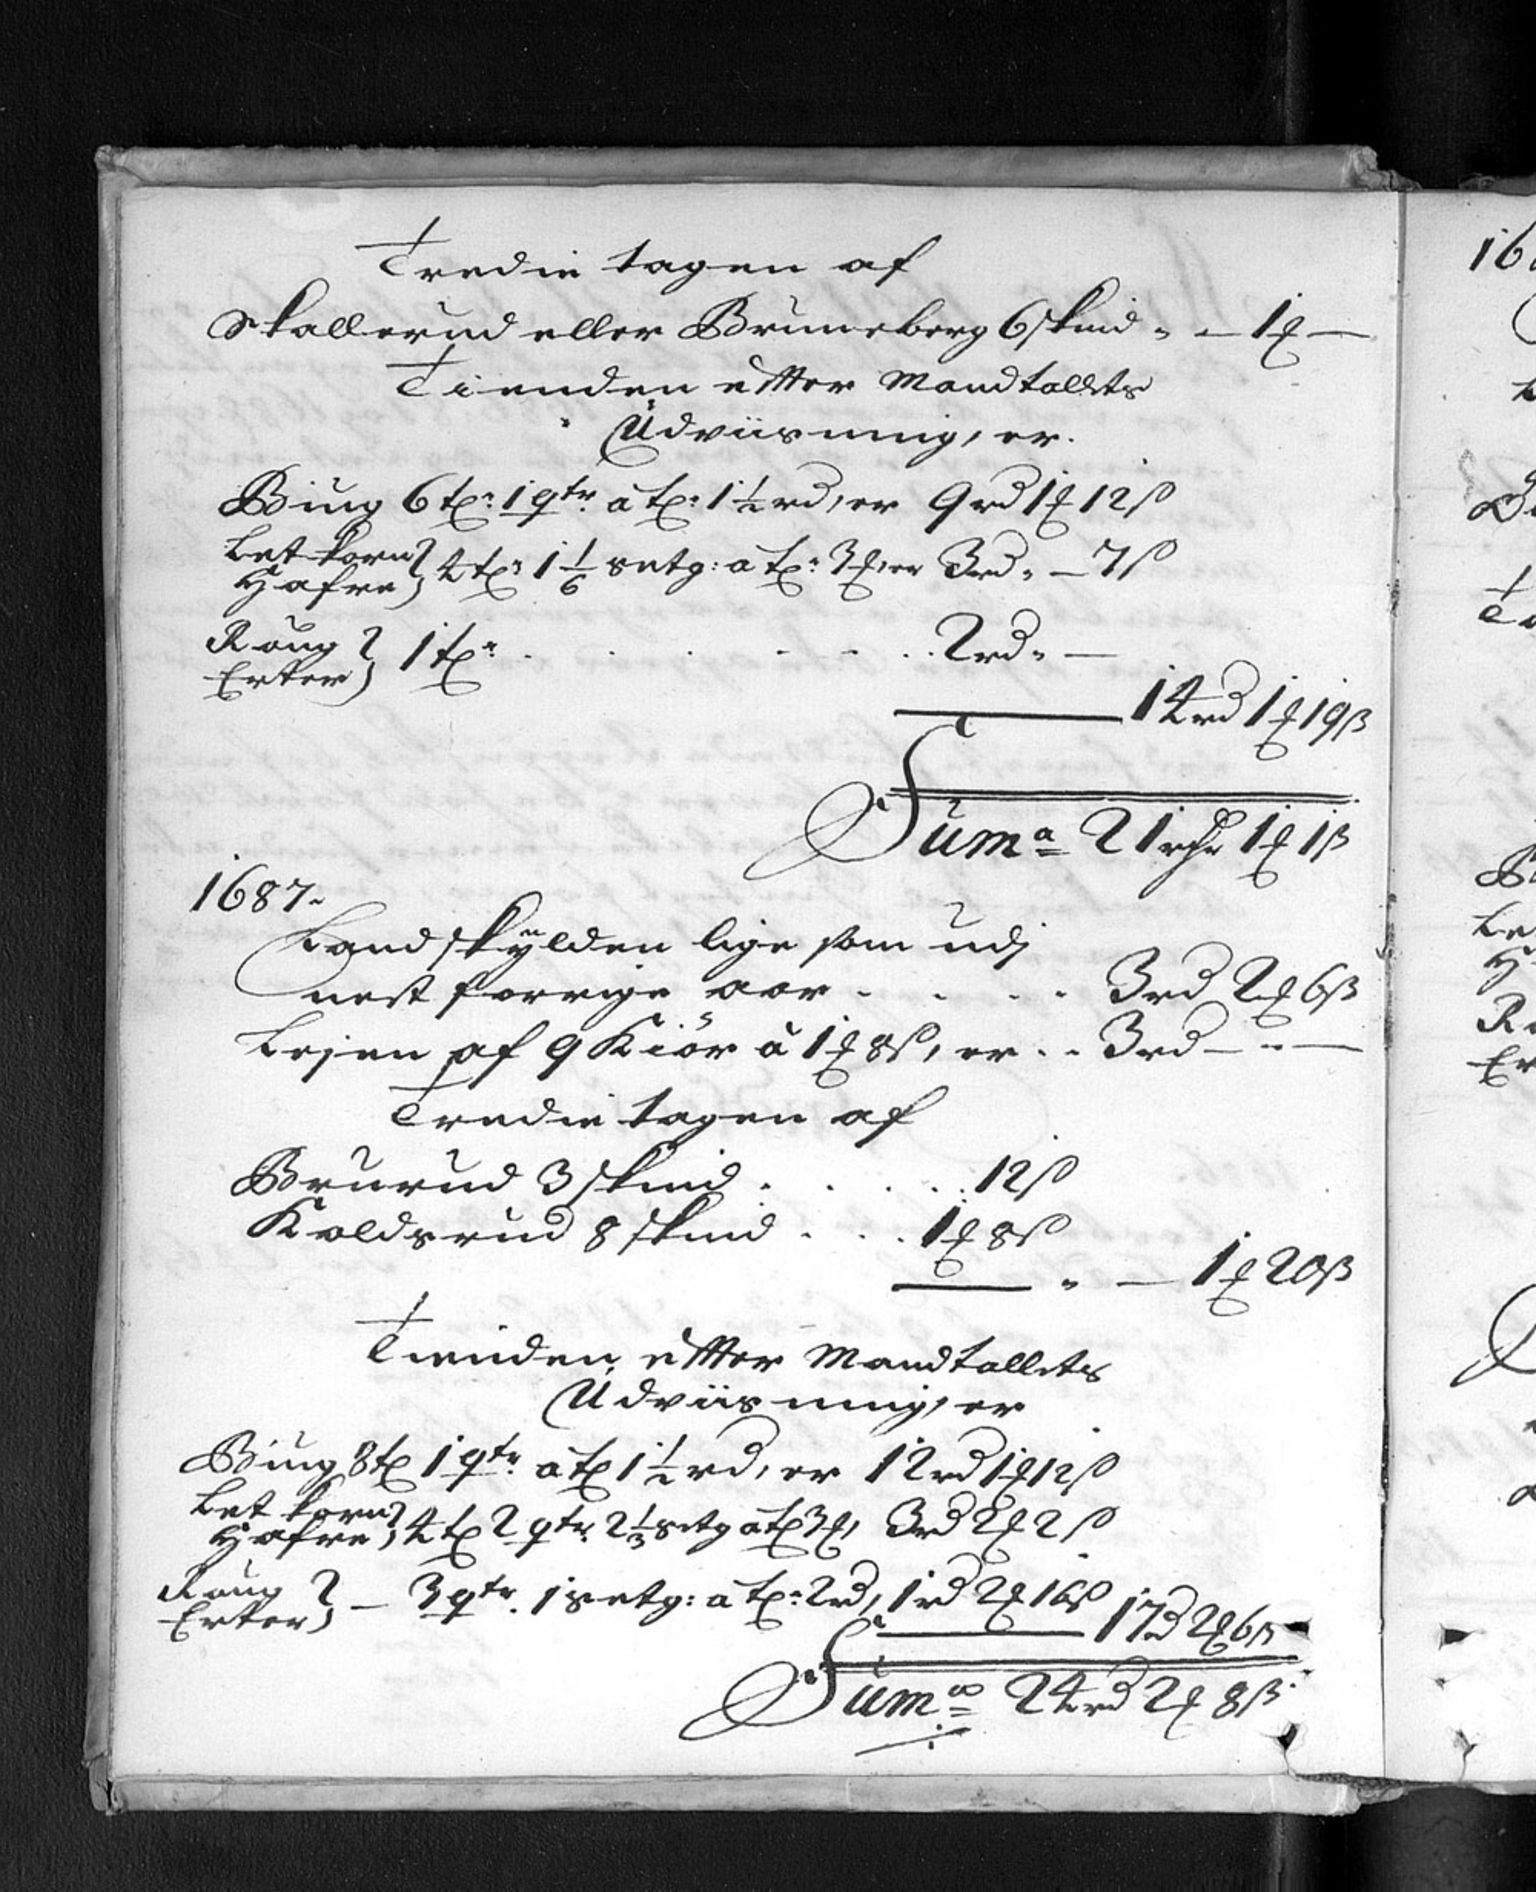 Tredie tagen af
Skallerud eller Bruneberg 6 skind „ — 1 ℳ —
Tienden efter Mandtallets
Udviisning, er.
Biug 6 tr: 1 qtr. á tr: 1 1/2 rd, er 9 rd 1 ℳ 12 ß
Let korn
Hafre } 4 tr: 1 1/6 setg: a tr: 3 ℳ, er 3 rd „ — 7 ß
Roug
Erter } 1 tr: . . . . . . 2 rd „ —
14 rd 1 ℳ 19 ß
Suma 21 rdr 1 ℳ 1 ß
1687.
Landskylden lige som udj
nest forrige aar . . . . 3 rd 2 ℳ 6 ß
Lejen af 9 Kiör á 1 ℳ 8 ß, er . . 3 rd — „ —
Tredie tagen af
Brurud 3 skind . . . . . 12 ß
Koldsrud 8 skind . . . 1 ℳ 8 ß
„ — 1 ℳ 20 ß
Tienden efter Mandtallets
Udviisning, er
Biug 8 tr 1 qtr. á tr 1 1/2 rd, er 12 rd 1 ℳ 12 ß
Let korn
Hafre } 4 tr 2 qtr. 2 1/3 setg á tr 3 ℳ, 3 rd 2 ℳ 2 ß
Roug
Erter } — 3 qtr. 1 setg: a tr: 2 rd, 1 rd 2 ℳ 16 ß
17 rd 2 ℳ 6 ß
Suma 24 rd 2 ℳ 8 ß.